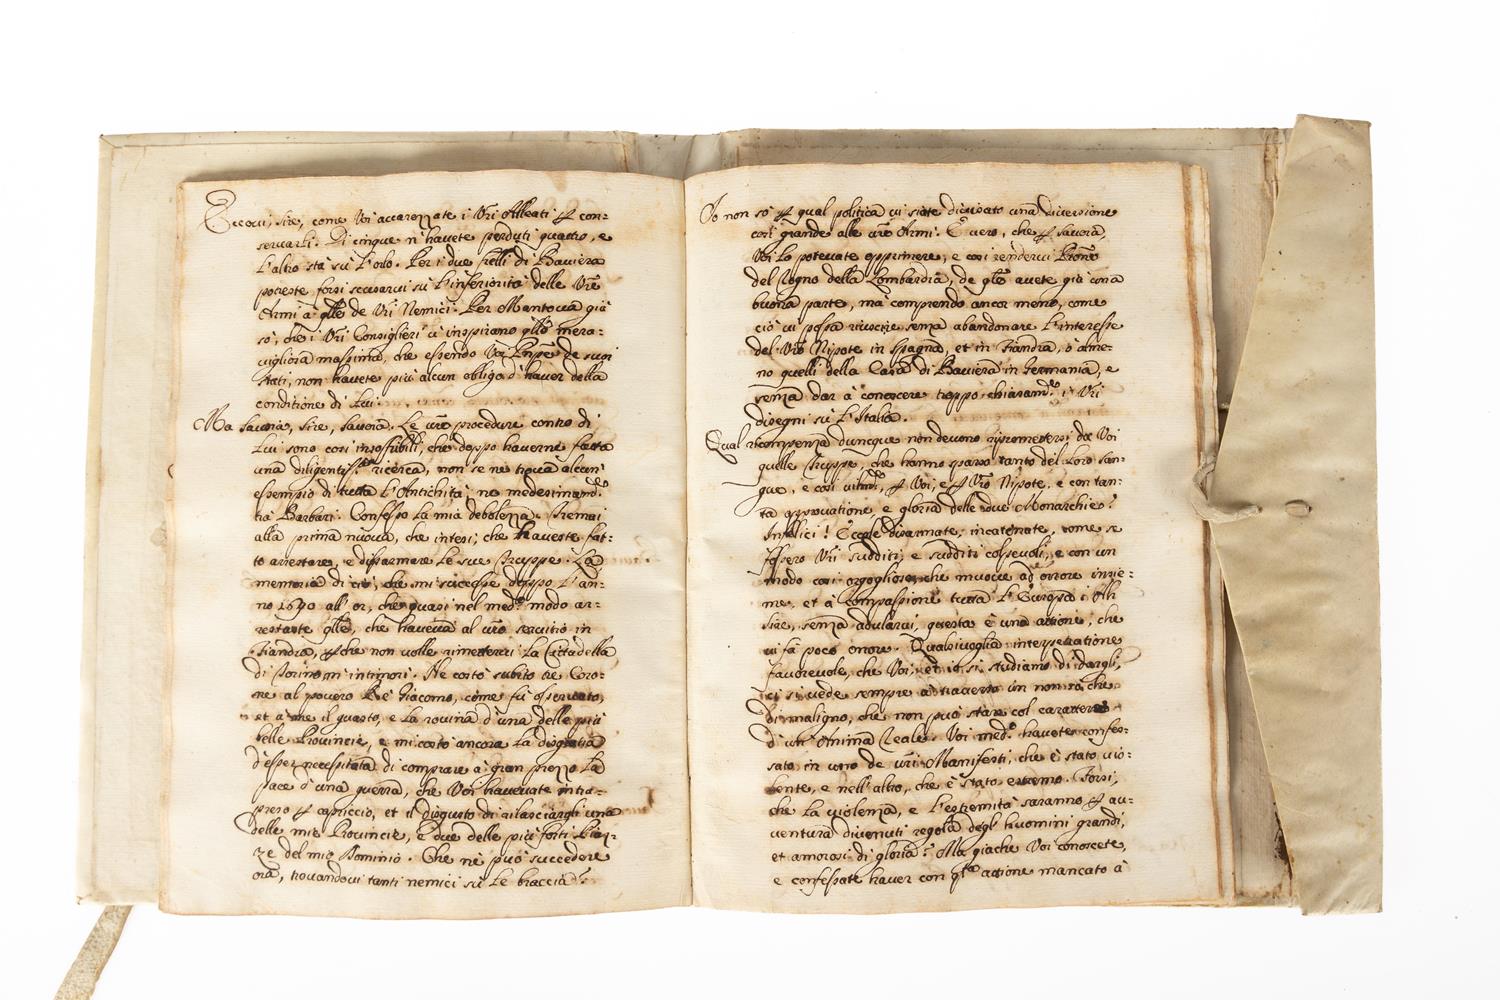 Eccovi, Sire, come Voi accarezzate i Vri Alleati p con:
servarli. Di cinque n'havete perduti quattro, e
l'altro stà sù l'orlo. Per i due frelli di Baviera
potreste forsi scusarvi sù l'inferiorità delle Vre
Armi à glle de Vri Nemici. Per Mantova già
sò, che i Vri Consiglieri v'inspirano qlla mera:
vigliosa massima, che essendo Voi de suoi
stati, non havete più alcun obligo d'haver della
conditione di lui.
Ma Savoia, Sire, Savoia. Le vre procedure contro di
lui sono così insoffribili, che doppo haverne fatta
una diligentissma ricerca, non se ne trova alcun'
essempio di tutta l'Antichità, ne medesimamte
trà Barbari. Confesso la mia debolezza. Tremai
alla prima nuova, che intesi, che haveste fat:
to arrestare, e disarmare le sue Truppe. La
memoria di ciò, che mi successe doppo l'an:
no 1690 all'or, che quasi nel medo modo ar:
restaste qlle, che haveva al vro servitio in
Fiandra, pche non volle rimettervi la Cittadella
di Torino m'intimorì. Ne costò subito tre Coro:
ne al povero Rè Giacomo, come fù osservato,
et à me il quarto, e la rovina d'una delle più
belle Provincie, e mi costò ancora la disgratia
d'esser necessitata di comprare à gran prezzo la
pace d'una guerra, che Voi havevate intra:
preso p capriccio, et il disgusto di rilasciargli una
delle mie Provincie, e due delle più forti Piaz:
ze del mio Dominio. Che ne può succedere
ora, trovandovi tanti nemici sù le braccia?
Io non sò p qual politica vi siete divisato una diversione
così grande alle vre Armi. È vero, che p Savoia,
Voi lo potevate opprimere, e così rendervi Prone
del Regno della Lombardia, de glle avete già una
buona parte, mà comprendo ancor meno, come
ciò vi possa riuscire senza abandonare l'interesse
del Vro Nipote in Spagna, et in Fiandra, ò alme:
no quelli della Casa di Baviera in Germania, e
senza dar à conoscere troppo chiaramte i Vri
disegni sù l'Italia.
Qual ricompenza dunque non devono ripromettersi da Voi
quelle Truppe, che hanno sparso tanto del loro san:
gue, e così utilmte, p Voi, e p Vro Nipote, e con tan:
ta approvatione, e gloria delle due Monarchie?
Infelici! Eccole disarmate, incatenate, come se
fossero Vri sudditi, e sudditi colpevoli, e con un
modo così orgoglioso, che muove ad orrore insie:
me, et à compassione tutta l'Europa. Ah
Sire, senza adularvi, questa è una attione, che
vi fà poco onore. Qualsivoglia interpretatione
favorevole, che Voi, et io si studiamo di dargli,
ci si vede sempre à traverso un non sò che
di maligno, che non può stare col carattere
d'un Anima Reale. Voi medo havete confes:
sato in uno de vri Manifesti, che è stato vio:
lente, e nell'altro, che è stato estremo. Forsi,
che la violenza, e l'estremità saranno p av:
ventura divenuti regola degl'huomini grandi,
et amorosi di gloria? Ma giache Voi conoscete,
e confessate haver con qta attione mancato à